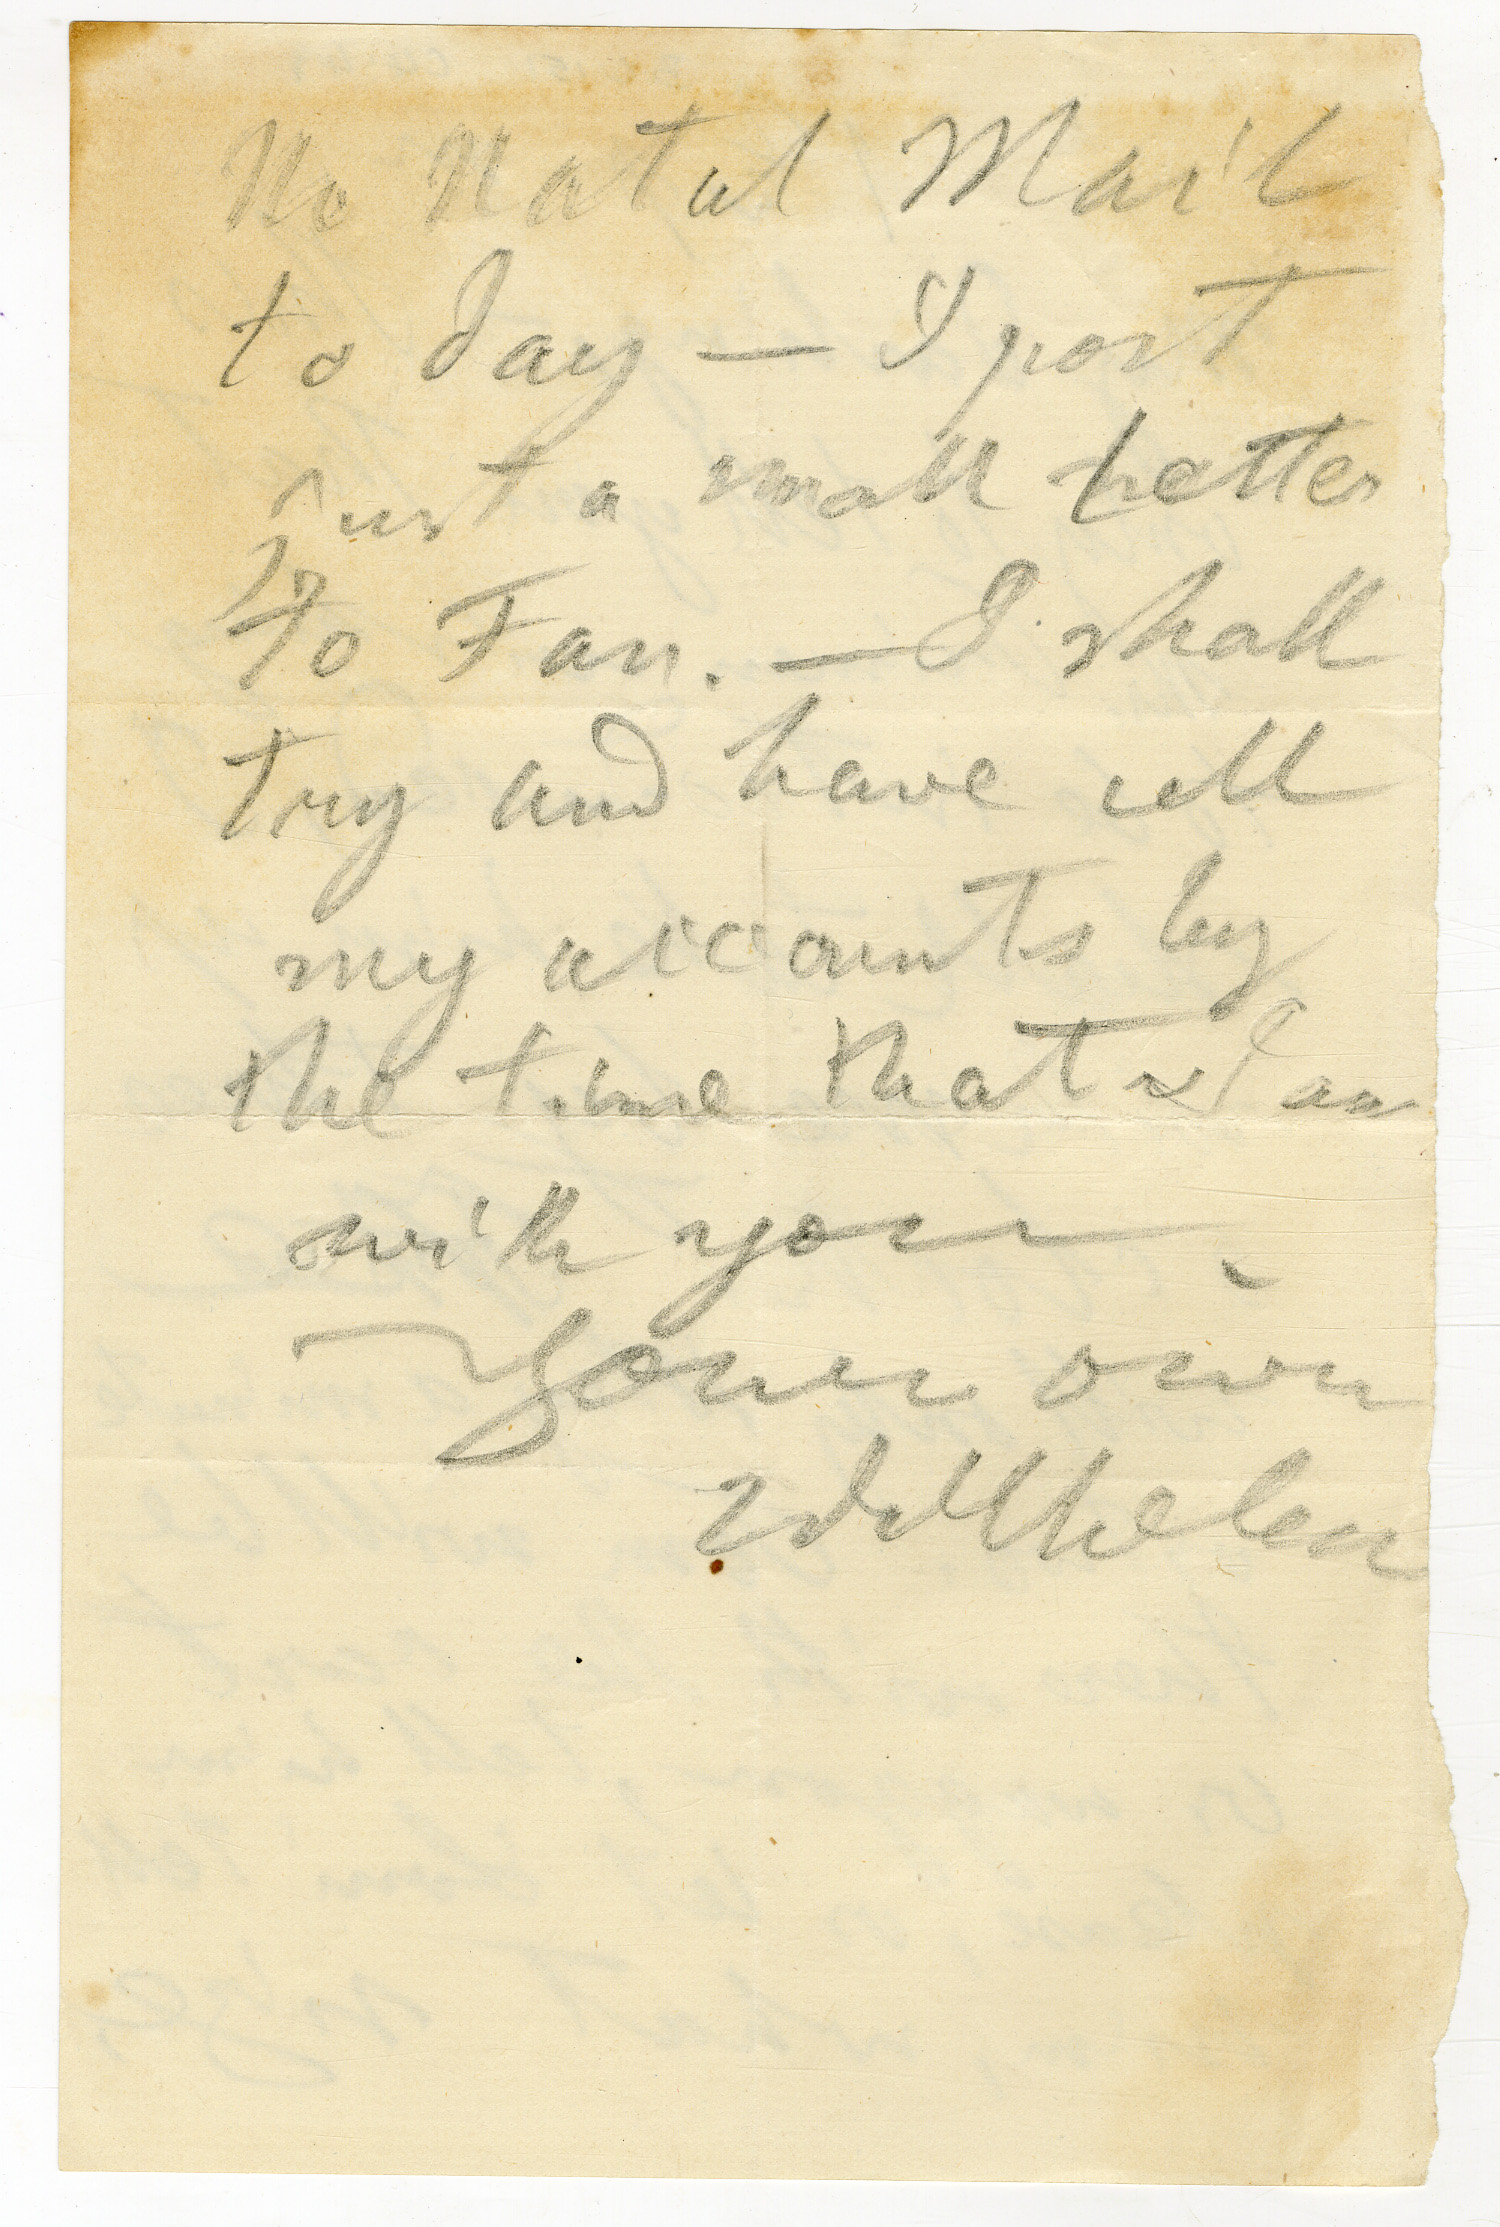 No Natal Mail
to day — I post
just a small letter
to Fan. — I shall
try and have all
my accounts by
the time that I am
with you.
Your own